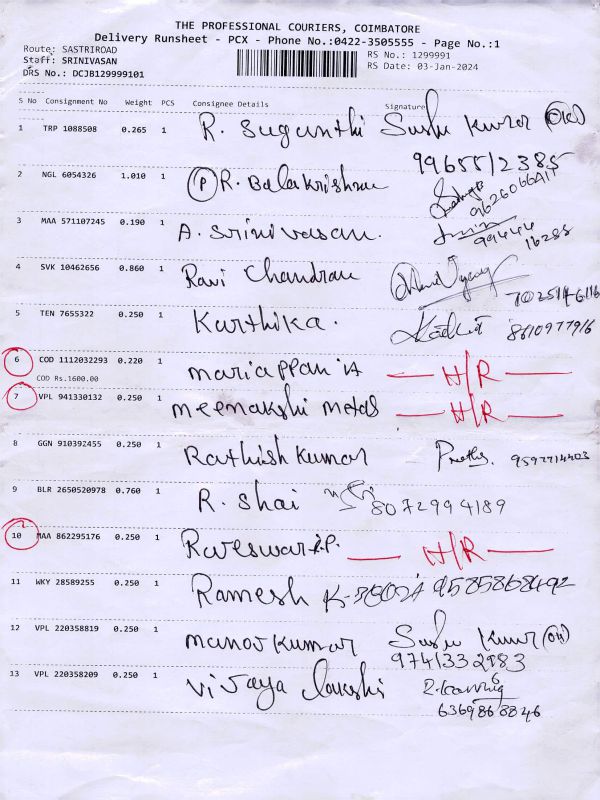 THE PROFESSIONAL COURIERS, COIMBATORE
Delivery Runsheet - PCX - Phone No.:0422-3505555 - Page No.:1
Route: SASTRIROAD RS No.: 1299991
Staff: SRINIVASAN RS Date: 03-Jan-2024
DRS No.: DCJB129999101
S No Consignment No Weight PCS Consignee Details Signature
1 TRP 1088508 0.265 1 R. Suganthi
9965512385
2 NGL 6054326 1.010 1 P R. Balakrishnan
3 MAA 571107245 0.190 1 A. Srinivasan. 99444
16288
4 SVK 10462656 0.860 1 Ravi Chandran
5 TEN 7655322 0.250 1 Karthika. 8610977916
6 COD 1112032293 0.220 1 mariappan H/R
COD Rs.1600.00
7 VPL 941330132 0.250 1 meenakshi metals H/R
8 GGN 910392455 0.250 1 Rathish Kumar 9597714403
9 BLR 2650520978 0.760 1 R. Shai 8072994189
10 MAA 862295176 0.250 1 H/R
11 WKY 28589255 0.250 1 Ramesh 9585868492
12 VPL 220358819 0.250 1 manoj kumar
9741332983
13 VPL 220358209 0.250 1 vijaya lakshi
6369868846